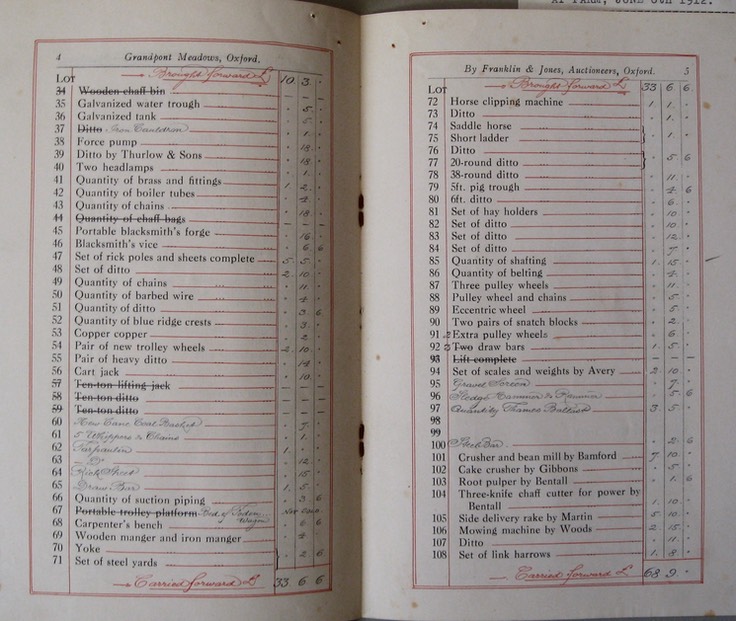 AT FARM, JUNE 6TH 1912.
4 Grandpont Meadows, Oxford.
Lot Brought forward £ 10. 3. -
34 Wooden chaff bin - - -
35 Galvanized water trough · 5 ·
36 Galvanized tank · 5 ·
37 Ditto Iron Cauldron · 1 ·
38 Force pump · 18 ·
39 Ditto by Thurlow & Sons · 18 ·
40 Two headlamps · 1 ·
41 Quantity of brass and fittings 1 2 ·
42 Quantity of boiler tubes · 4 ·
43 Quantity of chains · 18 ·
44 Quantity of chaff bags - - -
45 Portable blacksmith's forge · 16 ·
46 Blacksmith's vice · 6 6
47 Set of rick poles and sheets complete 5 5 ·
48 Set of ditto 2 10 ·
49 Quantity of chains · 11 ·
50 Quantity of barbed wire · 4 ·
51 Quantity of ditto · 3 6
52 Quantity of blue ridge crests · 3 ·
53 Copper copper · 2 ·
54 Pair of new trolley wheels 2 10 ·
55 Pair of heavy ditto · 14 ·
56 Cart jack · 10 ·
57 Ten-ton lifting jack - - -
58 Ten-ton ditto - - -
59 Ten-ton ditto - - -
60 New Cane Coal Basket · 7 ·
61 5 Whippers & Chains · 1 ·
62 Tarpaulin 1 · ·
63 - D° · 12 ·
64 Rick Sheet · 15 ·
65 Draw Bar 1 5 ·
66 Quantity of suction piping · 3 6
67 Portable trolley platform Bed of Wagon
68 Carpenter's bench · 6 6
69 Wooden manger and iron manger · 4 ·
70 Yoke
71 Set of steel yards · 2 6
Carried forward £ 33 6 6
By Franklin & Jones, Auctioneers, Oxford. 5
Lot Brought forward £ 33 6 6
72 Horse clipping machine 1 1 ·
73 Ditto · 1 ·
74 Saddle horse
75 Short ladder · 1 ·
76 Ditto
77 20-round ditto · 5 6
78 38-round ditto · 11 ·
79 5ft. pig trough · 4 6
80 6ft. ditto · 6 ·
81 Set of hay holders · 10 ·
82 Set of ditto · 10 ·
83 Set of ditto · 12 ·
84 Set of ditto · 7 ·
85 Quantity of shafting 1 15 ·
86 Quantity of belting · 4 ·
87 Three pulley wheels · 11 ·
88 Pulley wheel and chains · 5 ·
89 Eccentric wheel · 5 ·
90 Two pairs of snatch blocks · 2 ·
91 2 Extra pulley wheels · 6 ·
92 3 Two draw bars 1 5 ·
93 Lift complete - - -
94 Set of scales and weights by Avery 2 10 ·
95 Gravel Screen · 7 ·
96 Sledge Hammer & Rammer · 5 6
97 Quantity Thames Ballast 3 5 ·
98
99
100 Steel Bar · 2 6
101 Crusher and bean mill by Bamford 7 10 ·
102 Cake crusher by Gibbons · 5 ·
103 Root pulper by Bentall · 1 6
104 Three-knife chaff cutter for power by
Bentall 1 10 ·
105 Side delivery rake by Martin 5 10 ·
106 Mowing machine by Woods 2 15 ·
107 Ditto · 11 ·
108 Set of link harrows 1 8 ·
Carried forward £ 68 9 ·